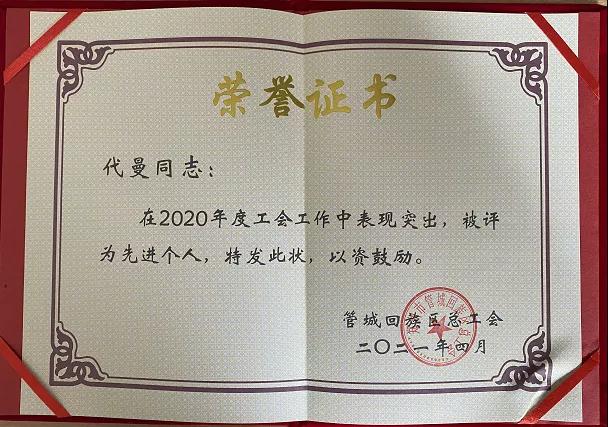 荣誉证书
代曼同志：
在2020年度工会工作中表现突出，被评
为先进个人，特发此状，以资鼓励。
管城回族区总工会
二〇二一年四月